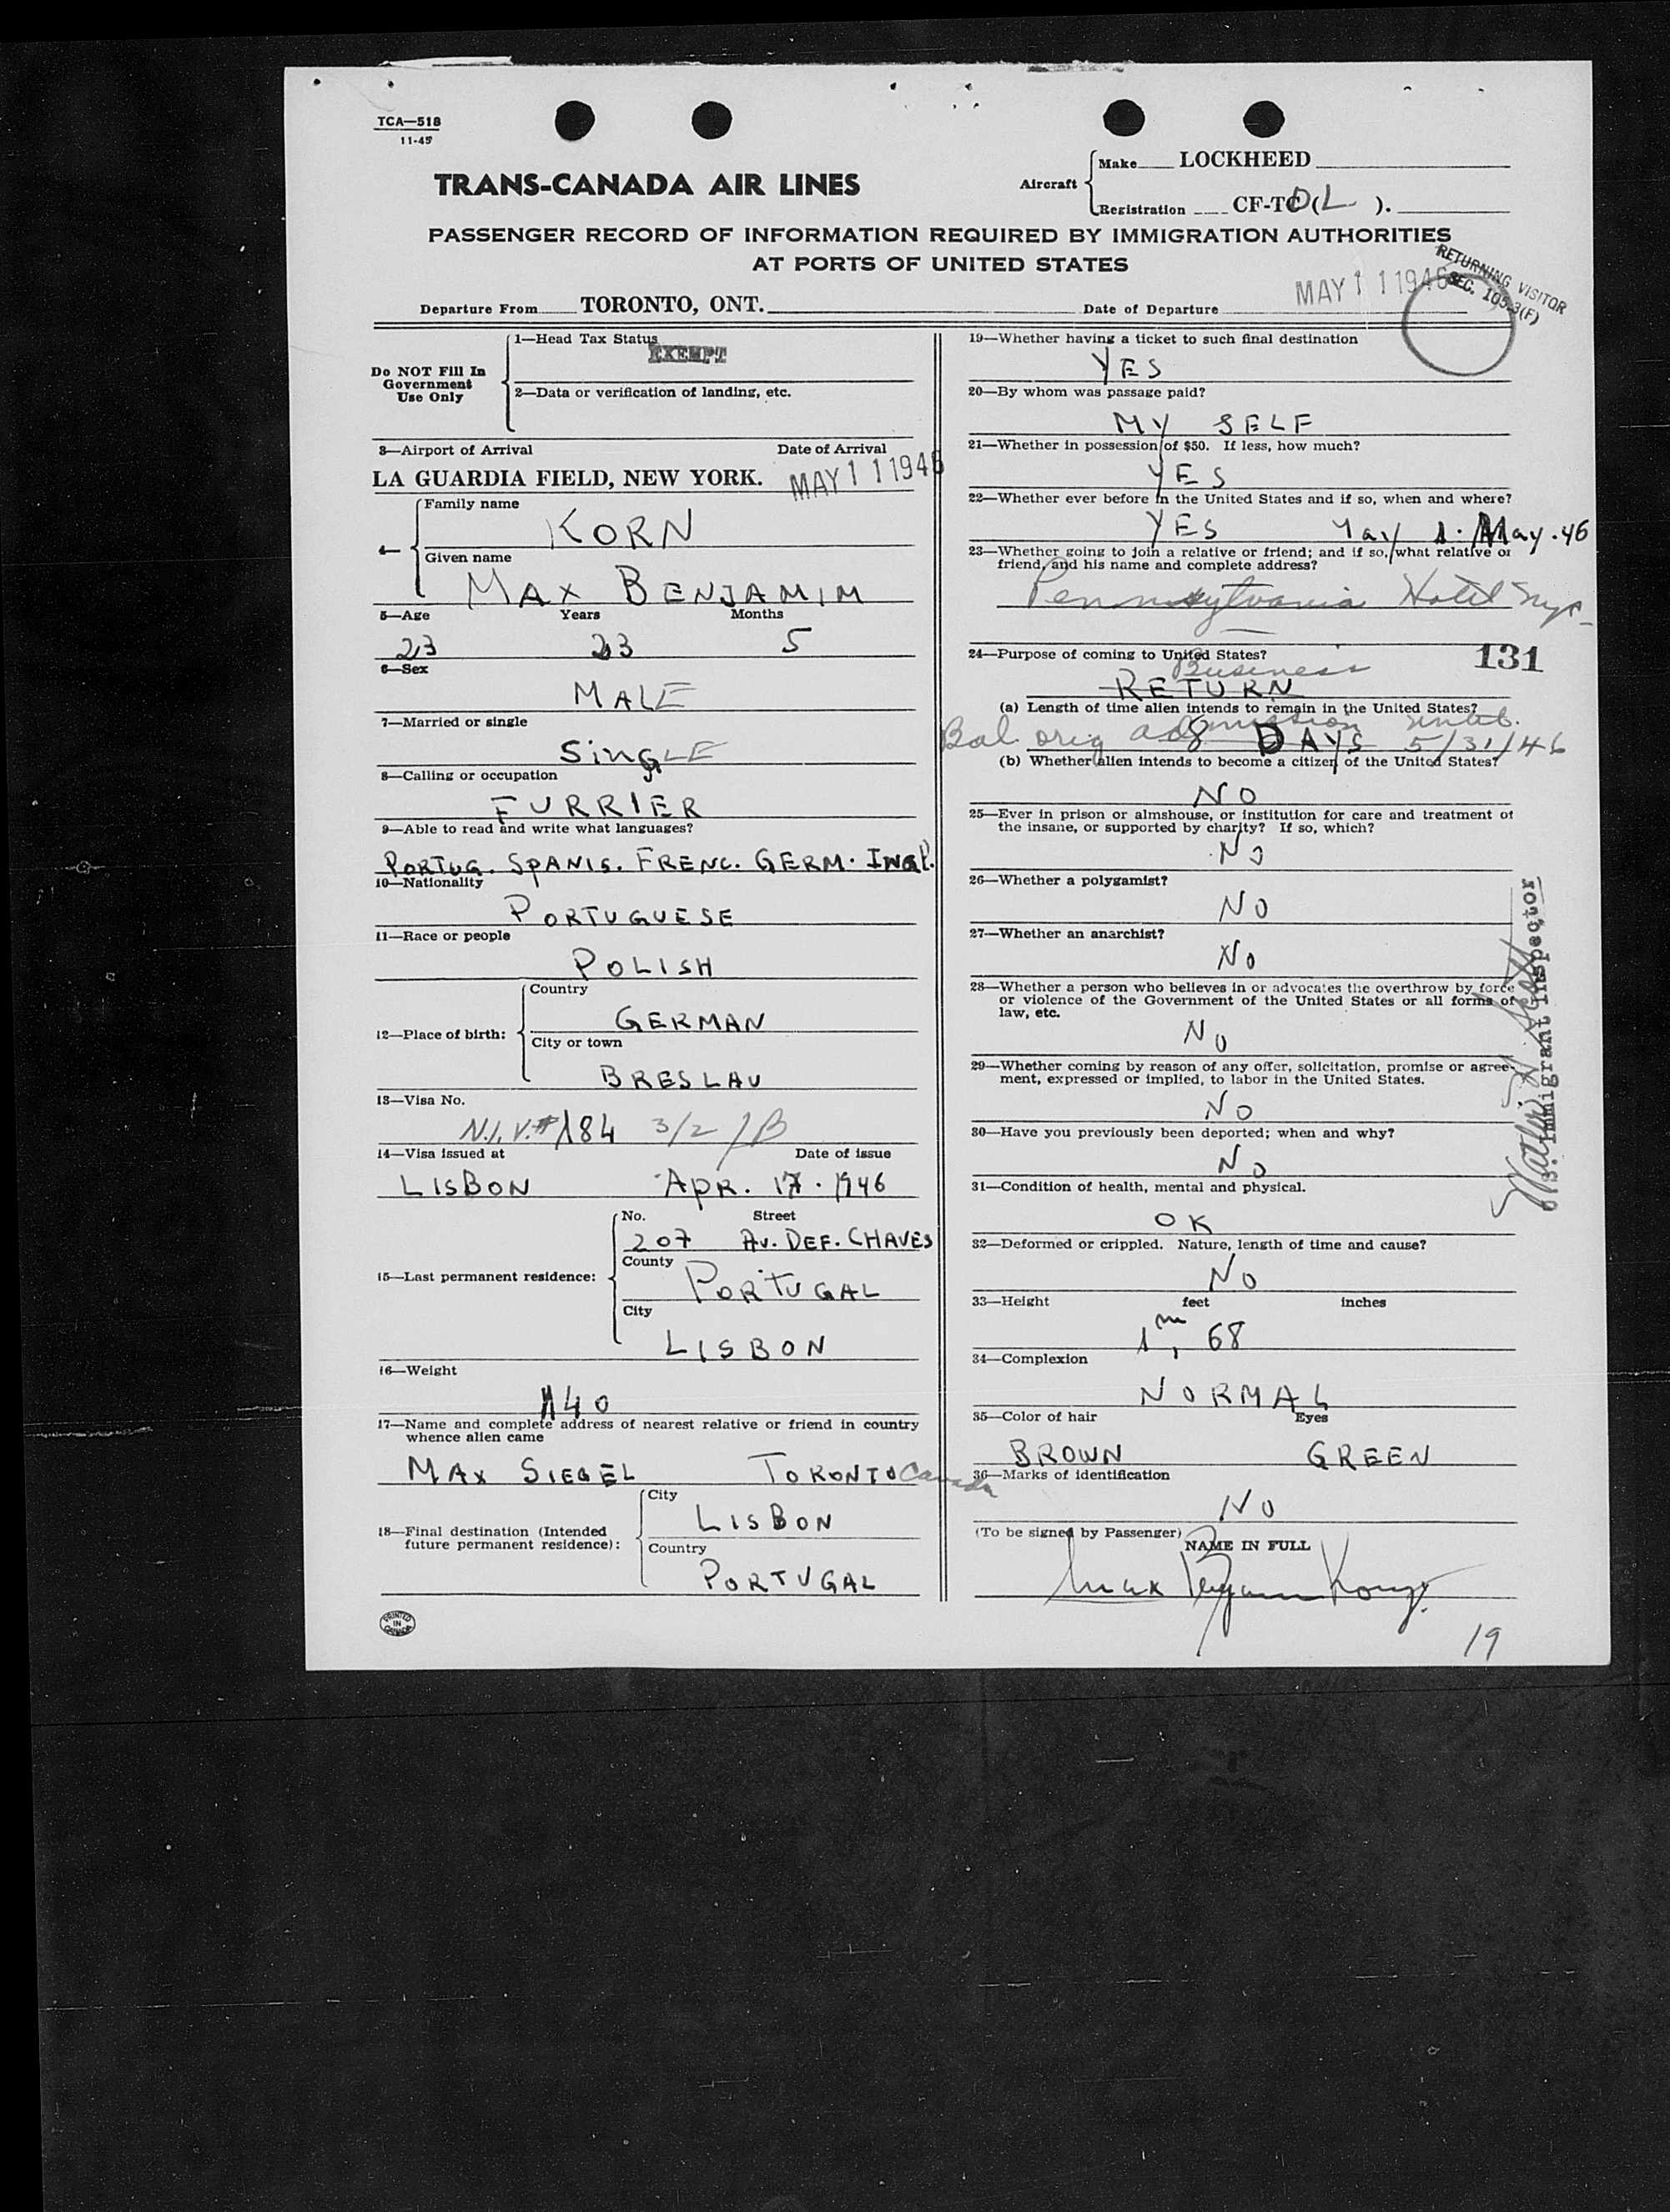 TCA—518
11-45
TRANS-CANADA AIR LINES
Aircraft
Make LOCKHEED
Registration CF-TC DL ( ).
PASSENGER RECORD OF INFORMATION REQUIRED BY IMMIGRATION AUTHORITIES
AT PORTS OF UNITED STATES
RETURNING VISITOR
SEC. 105.3(F)
Departure From TORONTO, ONT.
Date of Departure MAY 11 1946
Do NOT Fill In
Government
Use Only
1—Head Tax Status
EXEMPT
2—Data or verification of landing, etc.
3—Airport of Arrival Date of Arrival
LA GUARDIA FIELD, NEW YORK. MAY 11 1946
4—
Family name
KORN
Given name
MAX BENJAMIM
5—Age Years Months
23 23 5
6—Sex
MALE
7—Married or single
SINGLE
8—Calling or occupation
FURRIER
9—Able to read and write what languages?
PORTUG. SPANIS. FRENC. GERM. INGL.
10—Nationality
PORTUGUESE
11—Race or people
POLISH
12—Place of birth:
Country
GERMAN
City or town
BRESLAU
13—Visa No.
N.I.V.# 184 3/2 1B
14—Visa issued at Date of issue
LISBON APR. 17. 1946
15—Last permanent residence:
No. Street
207 AV. DEF. CHAVES
County
PORTUGAL
City
LISBON
16—Weight
140
17—Name and complete address of nearest relative or friend in country
whence alien came
MAX SIEGEL TORONTO Canada
18—Final destination (Intended
future permanent residence):
City
LISBON
Country
PORTUGAL
PRINTED
IN
CANADA
19—Whether having a ticket to such final destination
YES
20—By whom was passage paid?
MY SELF
21—Whether in possession of $50. If less, how much?
YES
22—Whether ever before in the United States and if so, when and where?
YES 1. May. 46
23—Whether going to join a relative or friend; and if so, what relative or
friend, and his name and complete address?
Pennsylvania Hotel Nyc
131
24—Purpose of coming to United States?
Business
RETURN
(a) Length of time alien intends to remain in the United States?
Bal orig admission until
8 DAYS 5/31/46
(b) Whether alien intends to become a citizen of the United States?
NO
25—Ever in prison or almshouse, or institution for care and treatment of
the insane, or supported by charity? If so, which?
NO
26—Whether a polygamist?
NO
27—Whether an anarchist?
NO
28—Whether a person who believes in or advocates the overthrow by force
or violence of the Government of the United States or all forms of
law, etc.
NO
29—Whether coming by reason of any offer, solicitation, promise or agree-
ment, expressed or implied, to labor in the United States.
NO
30—Have you previously been deported; when and why?
NO
31—Condition of health, mental and physical.
OK
32—Deformed or crippled. Nature, length of time and cause?
NO
33—Height feet inches
1m, 68
34—Complexion
NORMAL
35—Color of hair Eyes
BROWN GREEN
36—Marks of identification
NO
(To be signed by Passenger) NAME IN FULL
Max Benjamim Korn
U.S. Immigrant Inspector
19